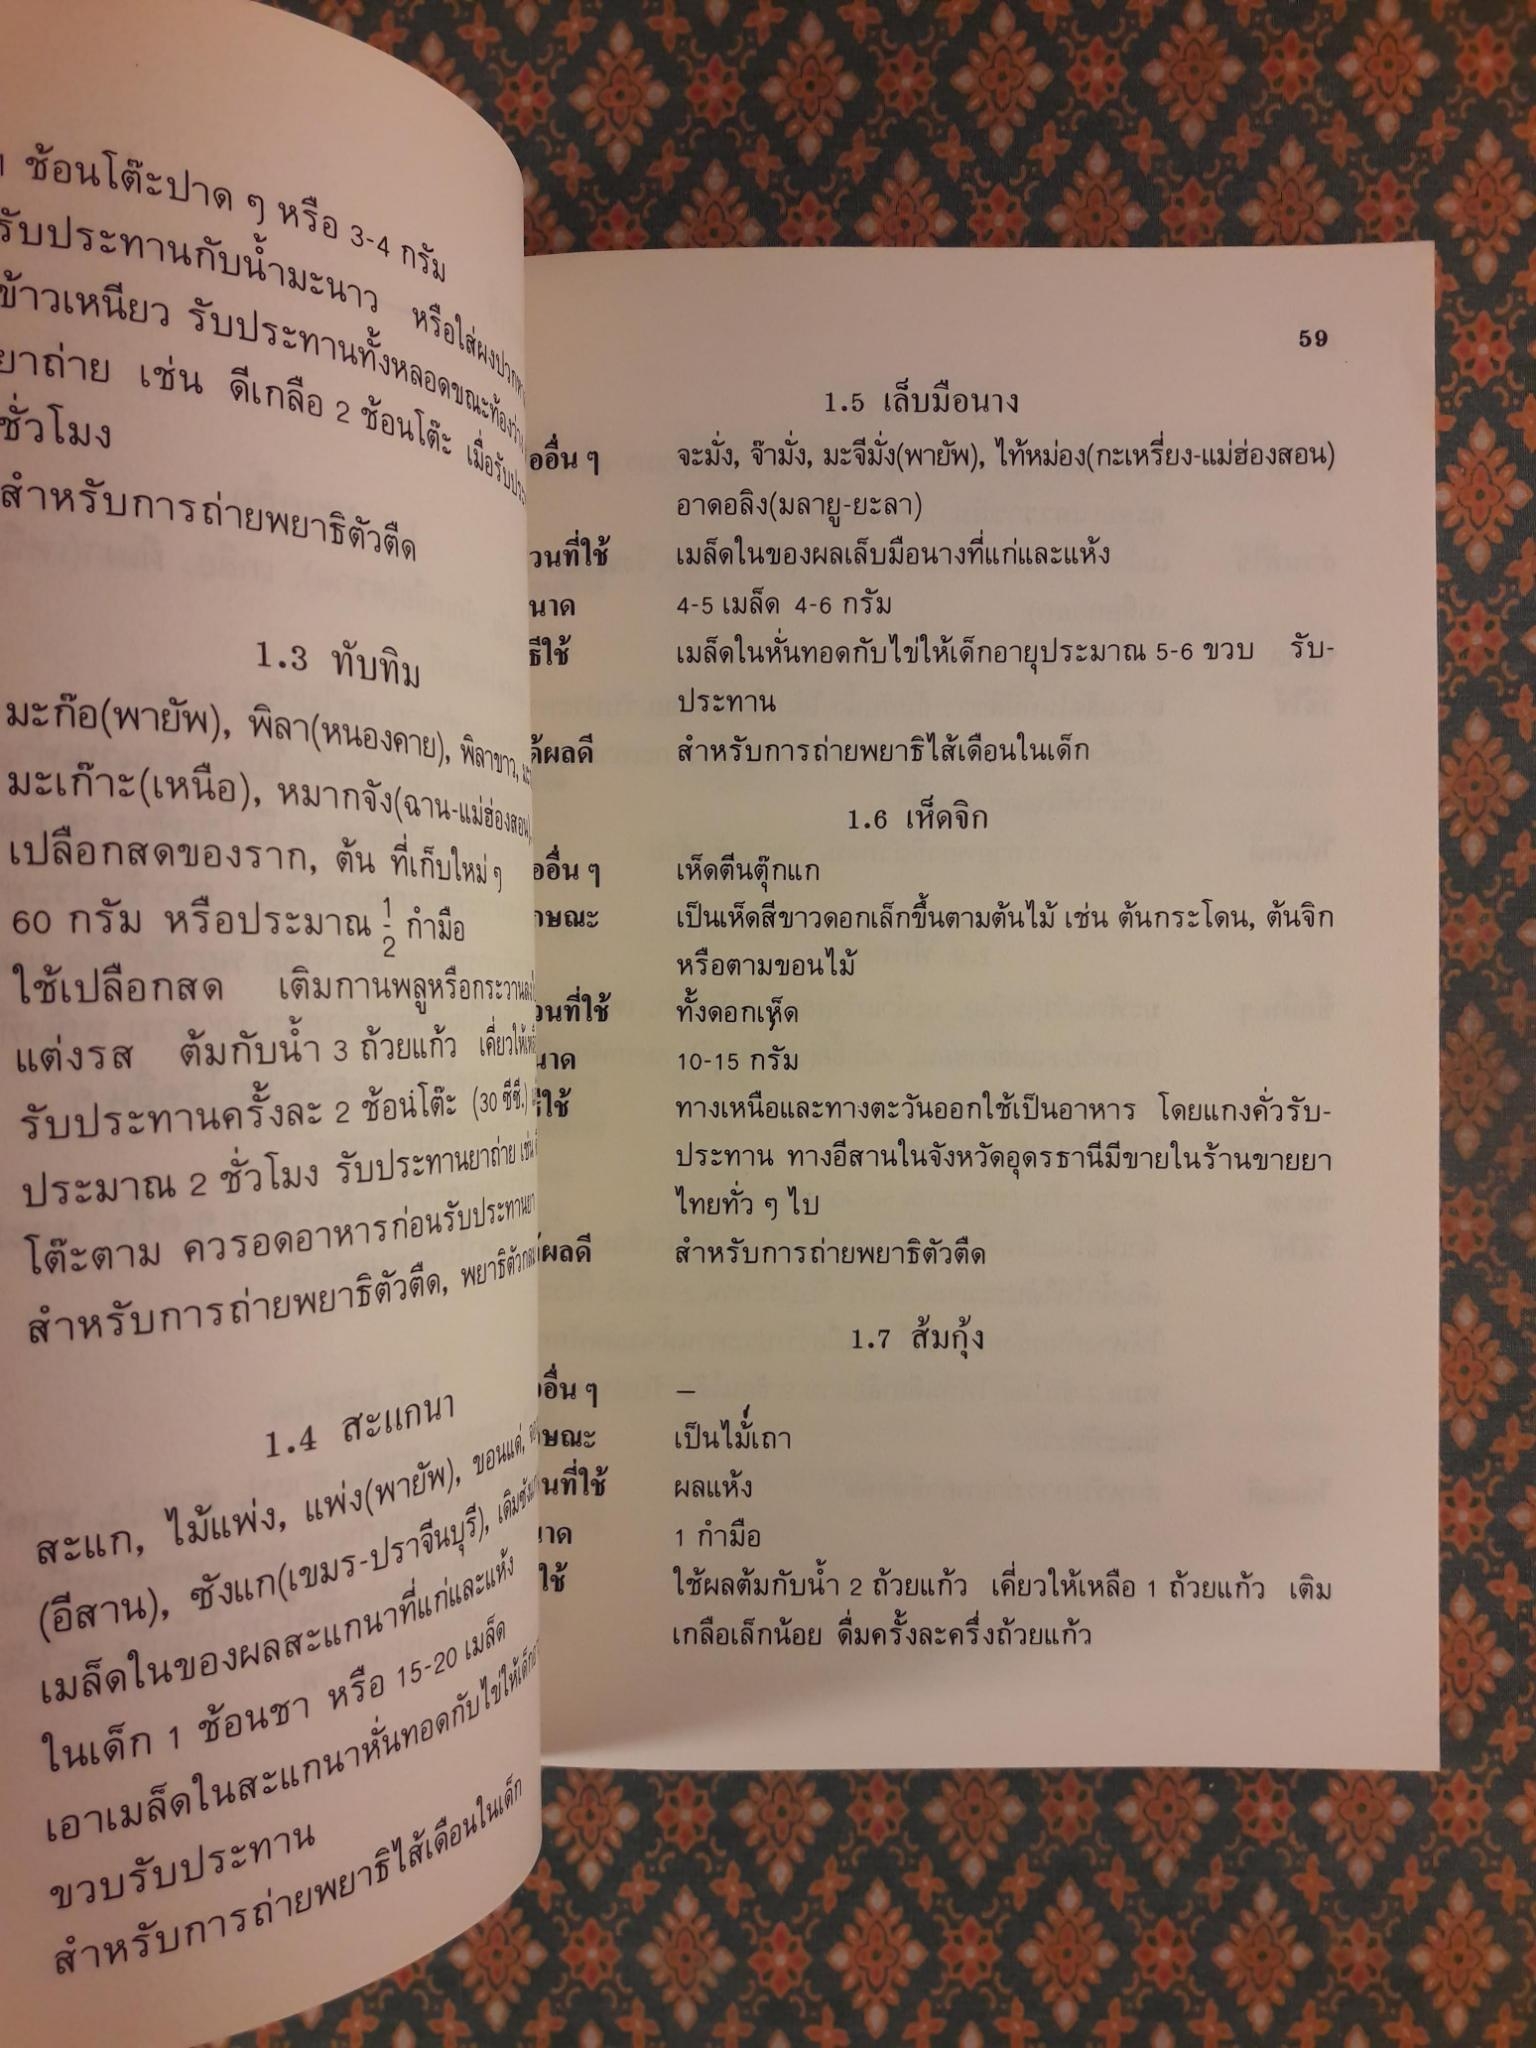 ช้อนโต๊ะปาด ๆ หรือ 3-4 กรัม
รับประทานกับน้ำมะนาว หรือใส่ผงปวกหาด
ข้าวเหนียว รับประทานทั้งหลอดขณะท้องว่าง
ยาถ่าย เช่น ดีเกลือ 2 ช้อนโต๊ะ เมื่อรับประ
ชั่วโมง
สำหรับการถ่ายพยาธิตัวตืด
1.3 ทับทิม
มะก๊อ(พายัพ), พิลา(หนองคาย), พิลาขาว,
มะเก๊าะ(เหนือ), หมากจัง(ฉาน-แม่ฮ่องสอน),
เปลือกสดของราก, ต้น ที่เก็บใหม่ ๆ
60 กรัม หรือประมาณ 1/2 กำมือ
ใช้เปลือกสด เติมกานพลูหรือกระวานลง
แต่งรส ต้มกับน้ำ 3 ถ้วยแก้ว เคี่ยวให้
รับประทานครั้งละ 2 ช้อนโต๊ะ (30 ซีซี.)
ประมาณ 2 ชั่วโมง รับประทานยาถ่าย เช่น
โต๊ะตาม ควรอดอาหารก่อนรับประทานยา
สำหรับการถ่ายพยาธิตัวตืด, พยาธิตัวกลม
1.4 สะแกนา
สะแก, ไม้แพ่ง, แพ่ง(พายัพ), ขอนแด่,
(อีสาน), ซังแก(เขมร-ปราจีนบุรี),
เมล็ดในของผลสะแกนาที่แก่และแห้ง
ในเด็ก 1 ช้อนชา หรือ 15-20 เมล็ด
เอาเมล็ดในสะแกนาหั่นทอดกับไข่ให้เด็ก
ขวบรับประทาน
สำหรับการถ่ายพยาธิไส้เดือนในเด็ก
59
1.5 เล็บมือนาง
ออื่น ๆ จะมั่ง, จ๊ามั่ง, มะจีมั่ง(พายัพ), ไท้หม่อง(กะเหรี่ยง-แม่ฮ่องสอน)
อาดอลิง(มลายู-ยะลา)
วนที่ใช้ เมล็ดในของผลเล็บมือนางที่แก่และแห้ง
นาด 4-5 เมล็ด 4-6 กรัม
ธีใช้ เมล็ดในหั่นทอดกับไข่ให้เด็กอายุประมาณ 5-6 ขวบ รับ-
ประทาน
ด้ผลดี สำหรับการถ่ายพยาธิไส้เดือนในเด็ก
1.6 เห็ดจิก
ออื่น ๆ เห็ดตีนตุ๊กแก
กษณะ เป็นเห็ดสีขาวดอกเล็กขึ้นตามต้นไม้ เช่น ต้นกระโดน, ต้นจิก
หรือตามขอนไม้
วนที่ใช้ ทั้งดอกเห็ด
นาด 10-15 กรัม
ธีใช้ ทางเหนือและทางตะวันออกใช้เป็นอาหาร โดยแกงคั่วรับ-
ประทาน ทางอีสานในจังหวัดอุดรธานีมีขายในร้านขายยา
ไทยทั่ว ๆ ไป
ด้ผลดี สำหรับการถ่ายพยาธิตัวตืด
1.7 ส้มกุ้ง
ออื่น ๆ –
กษณะ เป็นไม้เถา
วนที่ใช้ ผลแห้ง
นาด 1 กำมือ
ใช้ ใช้ผลต้มกับน้ำ 2 ถ้วยแก้ว เคี่ยวให้เหลือ 1 ถ้วยแก้ว เติม
เกลือเล็กน้อย ดื่มครั้งละครึ่งถ้วยแก้ว